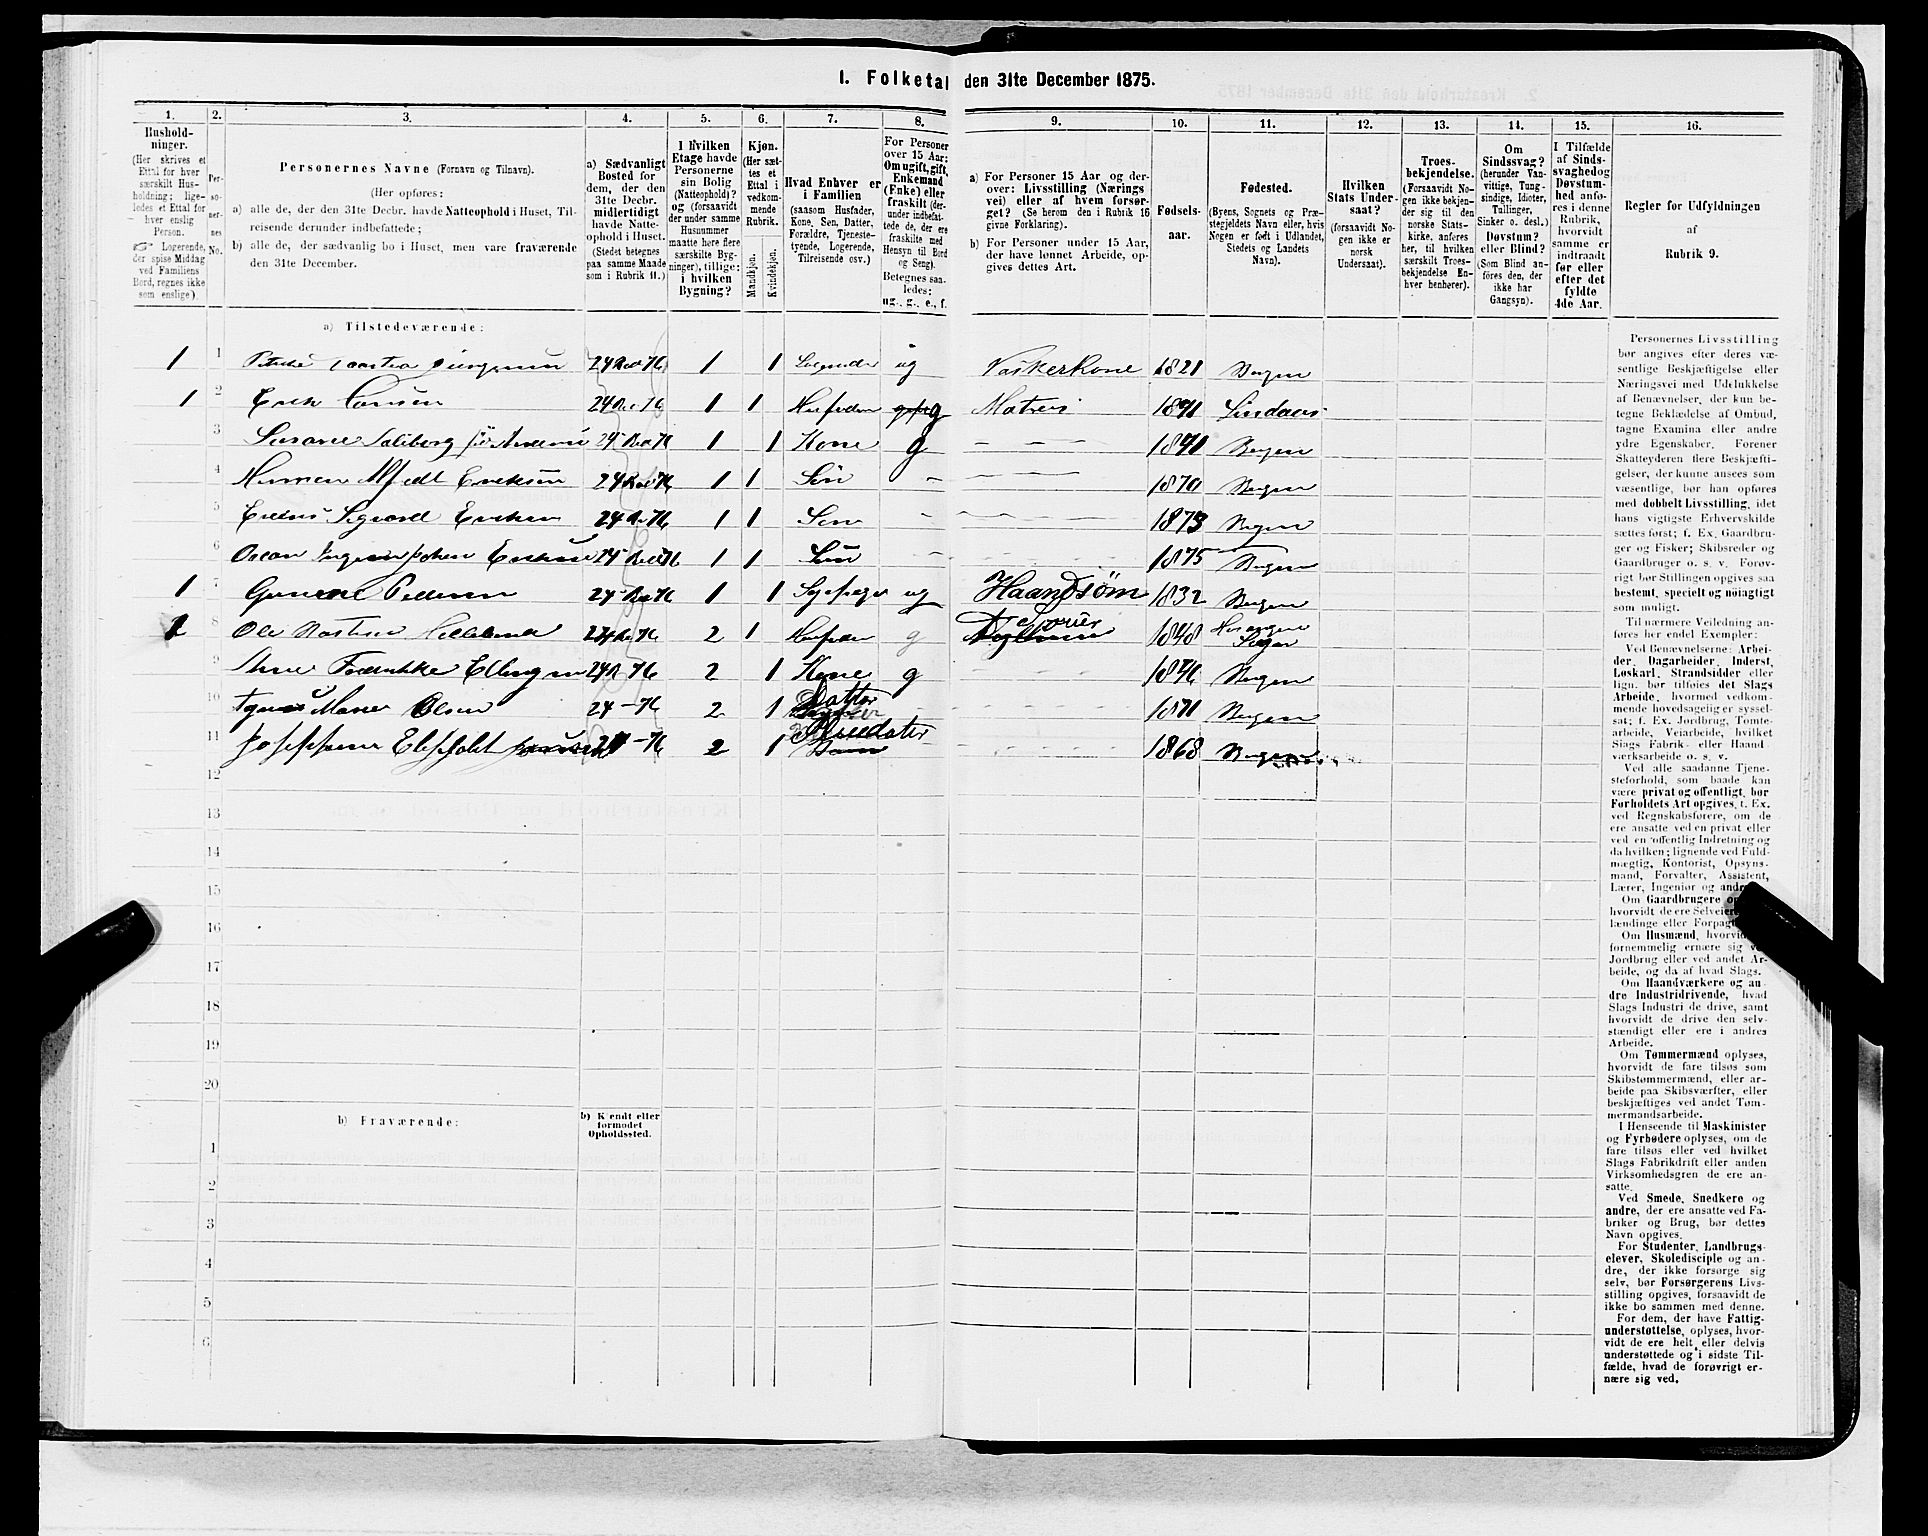 1. Folketal den 31te December 1875.
1. 2. 3. 4. 5. 6. 7. 8. 9. 10. 11. 12. 13. 14. 15. 16.
Hushold-
ninger.
(Her skrives et
Ettal for hver
særskilt Hus-
holdning; lige-
ledes et Ettal for
hver enslig
Person.
☞ Logerende,
der spise Middag
ved Familiens
Bord, regnes ikke
som enslige).
Per-
so-
ner-
nes
No.
Personernes Navne (Fornavn og Tilnavn).
(Her opføres:
a) alle de, der den 31te Decbr. havde Natteophold i Huset, Til-
reisende derunder indbefattede;
b) alle de, der sædvanlig bo i Huset, men vare fraværende
den 31te December.
a) Sædvanligt
Bosted for
dem, der den
31te Decbr.
midlertidigt
havde Natte-
ophold i Huset.
(Stedet betegnes
paa samme Maade
som i Rubrik 11.)
I hvilken
Etage havde
Personerne
sin Bolig
(Natteophold)?
og (forsaavidt
der under samme
Husnummer
maatte høre flere
særskilte Byg-
ninger), tillige:
i hvilken
Bygning?
Kjøn.
(Her sæt-
tes et
Ettal i
vedkom-
mende
Rubrik.
Mandkjøn.
Kvindekjøn.
Hvad Enhver er
i Familien
(saasom Husfader,
Kone, Søn, Datter,
Forældre, Tjeneste-
tyende, Logerende,
Tilreisende osv.)
For Personer
over 15 Aar:
Om ugift, gift,
Enkemand
(Enke) eller
fraskilt (der-
under indbefat-
tede de, der ere
fraskilte med
Hensyn til Bord
og Seng).
Betegnes saa-
ledes:
ug., g., e., f.
a) For Personer 15 Aar og der-
over: Livsstilling (Nærings
vei) eller af hvem forsør-
get? (Se herom den i Rubrik 16
givne Forklaring).
b) For Personer under 15 Aar,
der have lønnet Arbeide, op-
gives dettes Art.
Fødsels-
aar.
Fødested.
(Byens, Sognets og Præ-
stegjeldets Navn eller, hvis
Nogen er født i Udlandet,
Stedets og Landets
Navn).
Hvilken
Stats Under-
saat?
(forsaavidt No-
gen ikke er
norsk
Undersaat).
Troes-
bekjendelse.
(Forsaavidt No-
gen ikke bekjen-
der sig til den
norske Stats-
kirke, anføres
her, til hvilken
særskilt Troes-
bekjendelse En-
hver henhører).
Om
Sindssvag?
(herunder Van-
vittige, Tung-
sindige, Idioter,
Tullinger,
Sinker o. desl.)
Døvstum?
eller Blind?
(Som Blind an-
føres den, der
ikke har
Gangsyn).
I Tilfælde
af Sinds-
svaghed og
Døvstum-
hed anfø-
res i denne
Rubrik,
hvorvidt
samme er
indtraadt
før eller
efter det
fyldte
4de Aar.
Regler for Udfyldningen
af
Rubrik 9.
a) Tilstedeværende:
1 1 1 1 ug Vaskerkone 1821 Bergen
1 2 Erik Hansen 1 1 Husfader g Matros 1841 Lindaas
3 1 1 Kone g 1841 Bergen
4 1 1 Søn 1870 Bergen
5 1 1 Søn 1873 Bergen
6 1 1 Søn 1875 Bergen
1 7 Pedersen 1 1 ug Haandsøm 1832 Bergen
8 Ole 2 1 Husfader g 1848
9 Fredrikke Ellingsen 2 1 Kone g 1846 Bergen
10 Marie Olsen 24 – 76 2 1 Datter 1871 Bergen
11 – 76 2 1 Pleiedatter 1868 Bergen
12
13
14
15
16
17
18
19
20
b) Fraværende:
b) Kendt eller
formodet
Opholdssted.
1
2
3
4
5
6
Personernes Livsstilling
bør angives efter deres væ-
sentlige Beskjæftigelse eller
Næringsvei med Udelukkelse
af Benævnelser, der kun be-
tegne Beklædelse af Ombud,
tagne Examina eller andre
ydre Egenskaber. Forener
Skatteyderen flere Beskjæfti-
gelser, der kunne ansees som
væsentlige, bør han opføres
med dobbelt Livsstilling, idet
hans vigtigste Erhvervskilde
sættes først; f. Ex. Gaardbru-
ger og Fisker; Skibsreder og
Gaardbruger o. s. v. Forøv-
rigt bør Stillingen opgives saa
bestemt, specielt og nøiagtigt
som muligt.
Til nærmere Veiledning an-
føres her endel Exempler:
Ved Benævnelserne: Arbei-
der, Dagarbeider, Inderst,
Løskarl, Strandsidder eller
lign. bør tilføies det Slags
Arbeide, hvormed vedkom-
mende hovedsagelig er syssel-
sat; f. Ex. Jordbrug, Tomte-
arbeide, Veiarbeide, hvilket
Slags Fabrik- eller Haand
værksarbeide o. s. v.
Ved alle saadanne Tjene-
steforhold, som baade kan
være privat og offentligt, bør
Forholdets Art opgives, t. Ex.
ved Regnskabsførere, om de
ere ansatte ved en privat eller
ved en offentlig Indretning og
da hvilken; lignende ved Fuld-
mægtig, Kontorist, Opsyns-
mand, Forvalter, Assistent,
Lærer, Ingeniør og
Om Gaardbrugere
hvorvidt de ere
lændinge eller
Om Husmænd,
fornemmelig ernære sig
Jordbrug eller ved andet Ar-
beide, og da af hvad Slags.
Om Haandværkere og an-
dre Industridrivende, hvad
Slags Industri de drive, samt
hvorvidt de drive den selv-
stændigt eller ere i andres
Arbeide.
Om Tømmermænd oplyses,
hvorvidt de fare tilsøs som
Skibstømmermænd, eller ar-
beide paa Skibsværfter, eller
beskjæftiges ved andet Tøm-
mermandsarbeide.
I Henseende til Maskinister
og Fyrbødere oplyses, om de
fare tilsøs eller ved hvilket
Slags Fabrikdrift eller anden
Virksomhedsgren de ere an-
satte.
Ved Smede, Snedkere og
andre, der ere ansatte ved Fa-
briker og Brug, bør dettes
Navn opgives.
For Studenter, Landbrugs-
elever, Skoledisciple og an-
dre, der ikke forsørge sig
selv, bør Forsørgerens Livs-
stilling opgives, forsaavidt de
ikke bo sammen med denne.
For dem, der have Fattig-
understøttelse, oplyses, hvor-
vidt de ere helt eller delvis
understøttede og i sidste Til-
fælde, hvad de forøvrigt er-
nære sig ved.